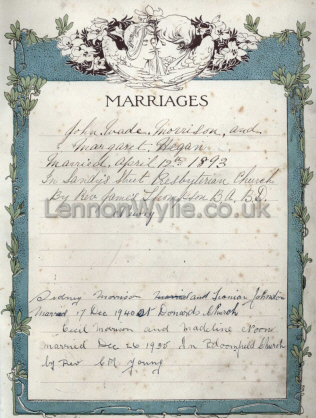 MARRIAGES
John Wade Morrison, and
Margaret Hegan
Married April 19th 1893
In Sandy's Street Presbyterian Church
By Rev James Thompson B.A. B.D.
Newry
LennonWylie.co.uk
Sidney Morrison and Johnston
Married 17 Dec 1940 at Donards Church
Cecil Morrison and Madeline Noone
married Dec 26 1935 In Bloomfield Church
by Rev Young